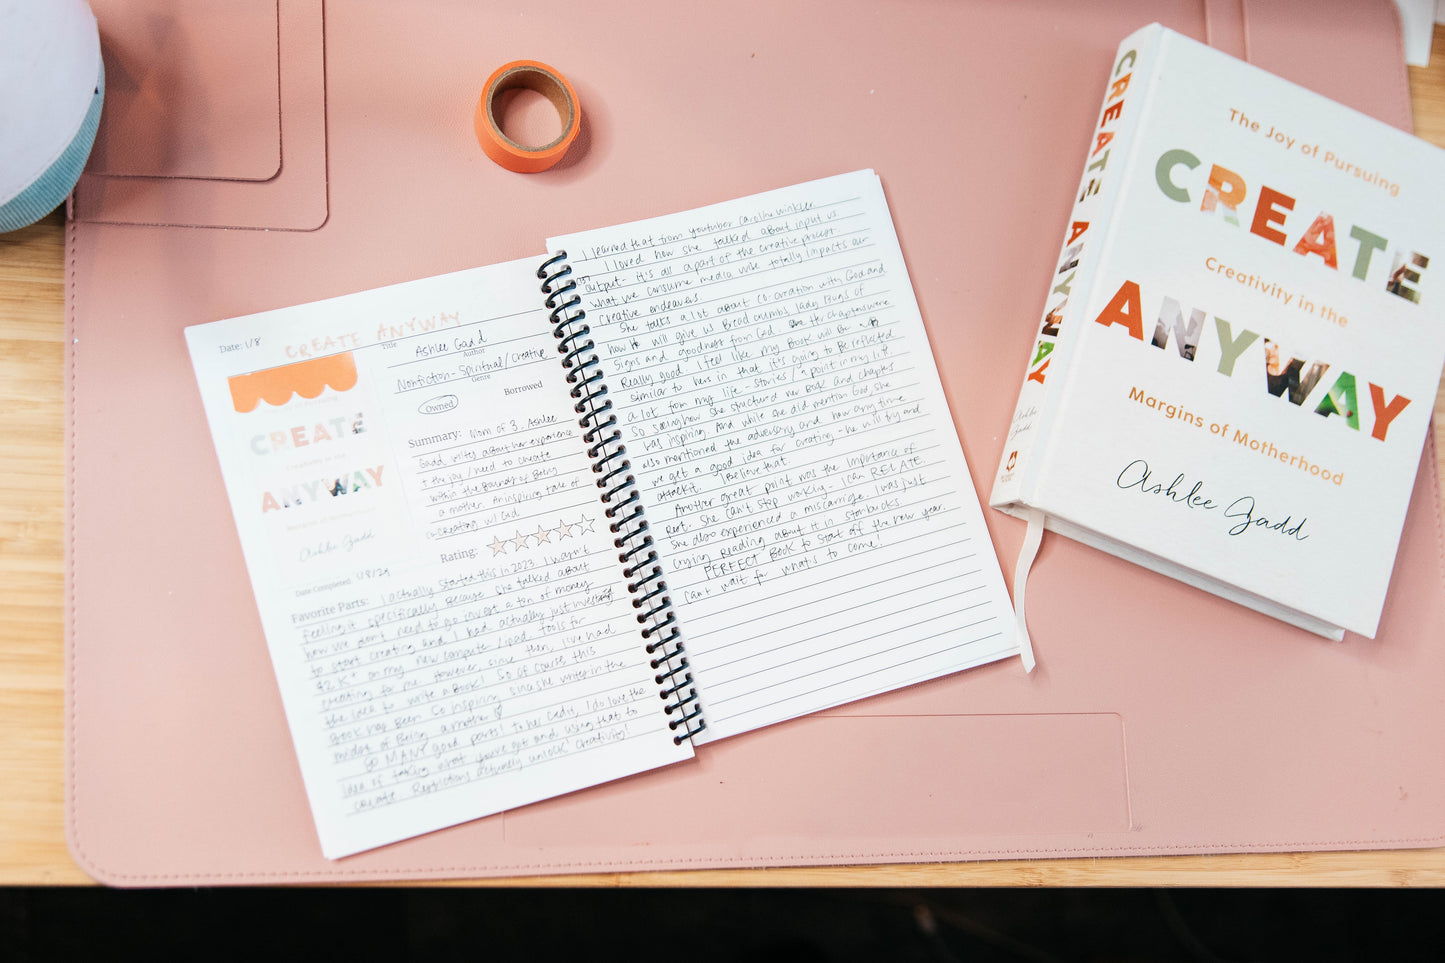 Date: 1/8
CREATE ANYWAY
Title
Ashlee Gadd
Author
Nonfiction - Spiritual/Creative
Genre
Owned
Borrowed
CREATE
ANYWAY
Ashlee Gadd
Summary: Mom of 3, Ashlee
Gadd writes about her experience
+ the joy / need to create
within the Bounds of Being
a mother. An inspiring tale of
co-creating w/ God
Rating:
Date Completed: 1/8/24
Favorite Parts: I actually started this in 2023. I wasn't
feeling it specifically Because she talked about
how we don't need to go invest a ton of money
to start creating and I had actually just invested
$2K+ on my new computer / ipad tools for
creating for me. However, since then, I've had
the idea to write a Book! So of course this
Book has Been so inspiring since she writes in the
midst of Being a mother
So MANY good parts! To her credit, I do love the
idea of taking what you've got and using that to
create. Restrictions actually unlock creativity!
I learned that from youtuber Caroline Winkler.
I loved how she talked about input vs
output - it's all a part of the creative process.
What we consume media wise totally impacts our
creative endeavors.
She talks a lot about co-creation with God and
how He will give us Bread crumbs, lady Bugs of
signs and goodness from God. The chapters were
Really good. I feel like my Book will Be
similar to hers in that it's going to Be reflected
a lot from my life - stories / a point in my life
so seeing how she structured her Book and chapters
was inspiring. And while she did mention God, she
also mentioned the adversary and how any time
we get a good idea for creating - he will try and
attack it. I Believe that.
Another great point was the importance of
Rest. She can't stop working - I can RELATE.
She also experienced a miscarriage. I was just
crying reading about it in Starbucks
PERFECT Book to start off the new year.
Can't wait for what's to come!
CREATE ANYWAY
Ashlee
Gadd
The Joy of Pursuing
CREATE
Creativity in the
ANYWAY
Margins of Motherhood
Ashlee Gadd